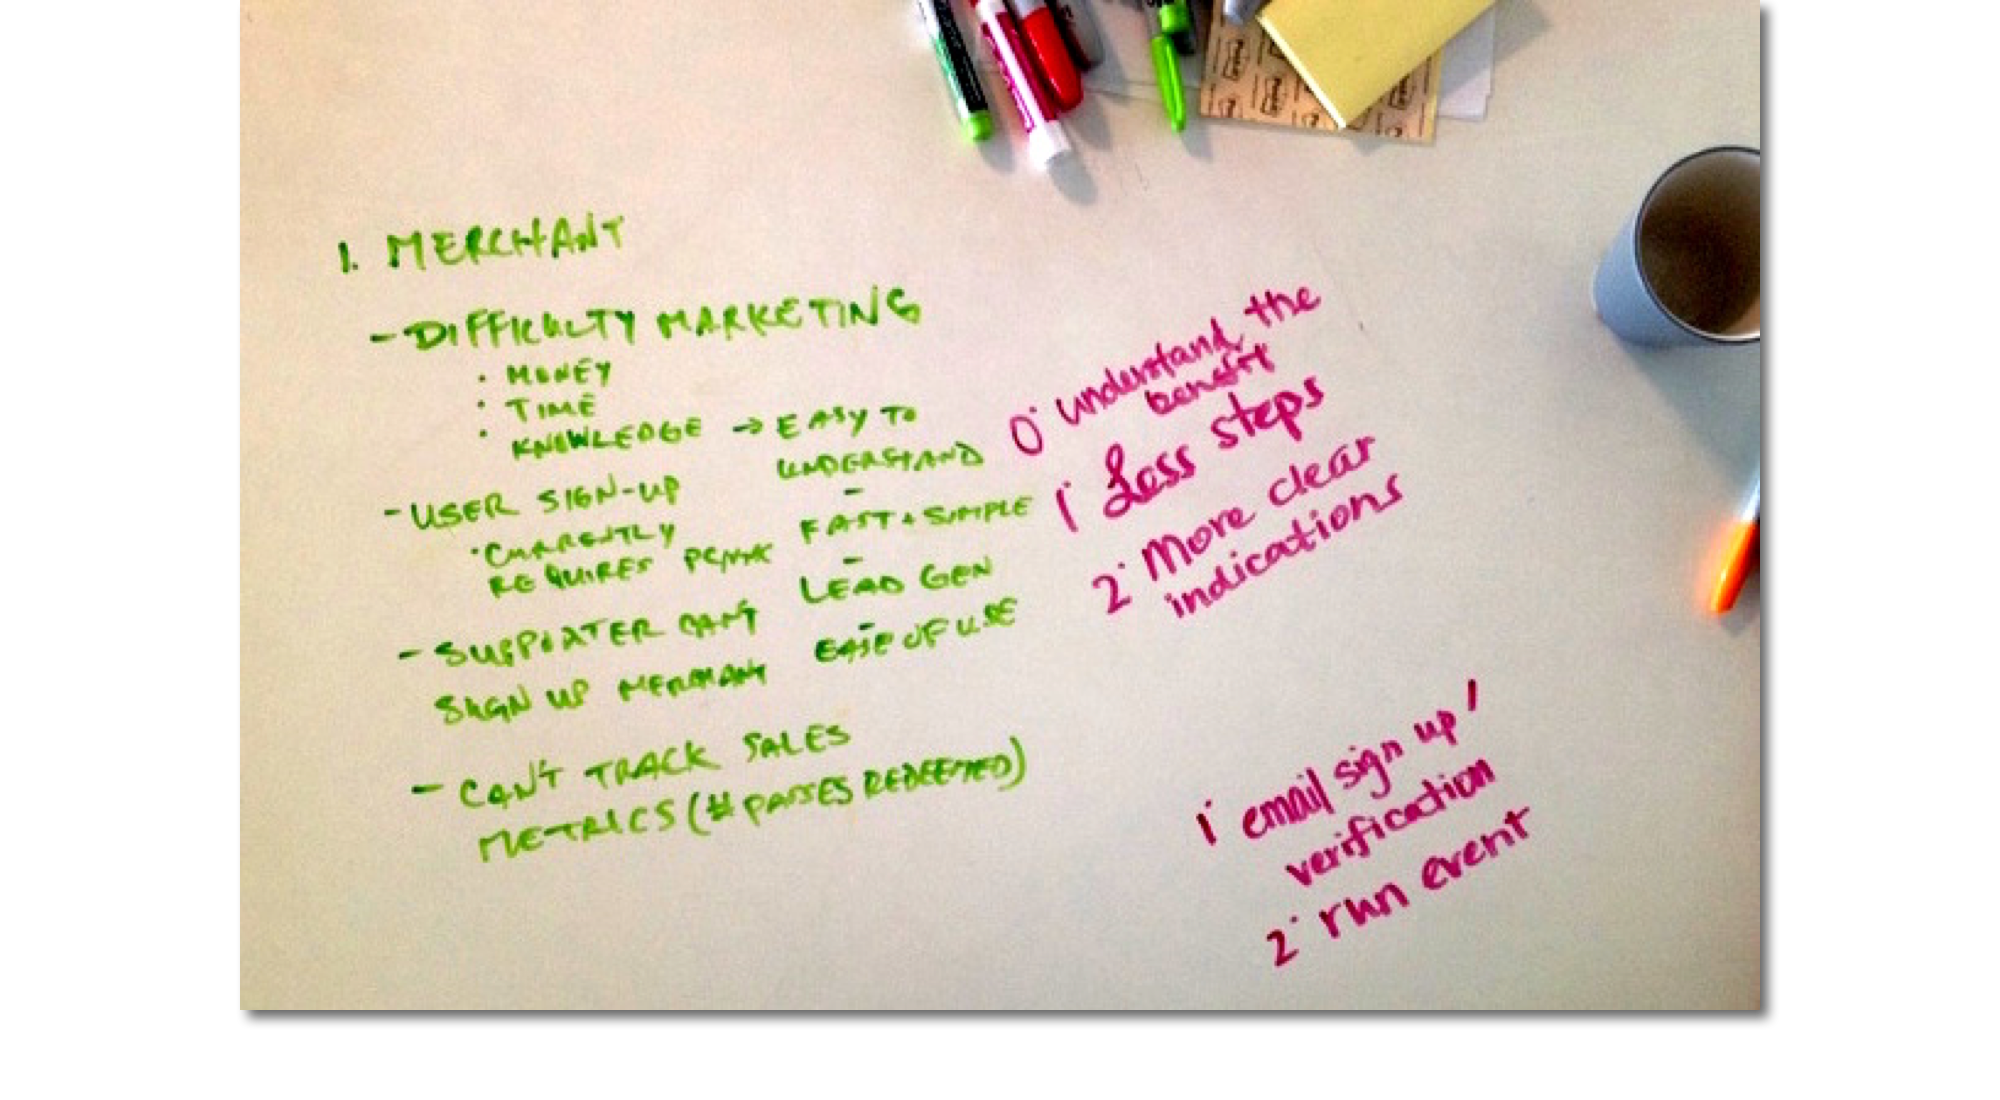 1. MERCHANT
- DIFFICULTY MARKETING
· MONEY
· TIME
· KNOWLEDGE → EASY TO
UNDERSTAND
-
FAST + SIMPLE
-
LEAD GEN
-
EASE OF USE
- USER SIGN-UP
· CURRENTLY
REQUIRES
- SUPPORTER CAN'T
SIGN UP MERCHANT
- CAN'T TRACK SALES
METRICS (# PASSES REDEEMED)
0· understand the
benefit
1· Less steps
2· More clear
indications
1· email sign up /
verification
2· run event
Post-it